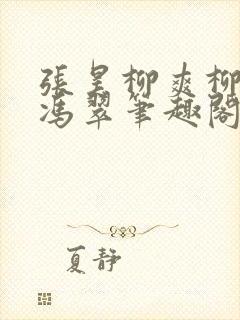 張皇柳爽柳
馮翠筆趣閣
夏靜